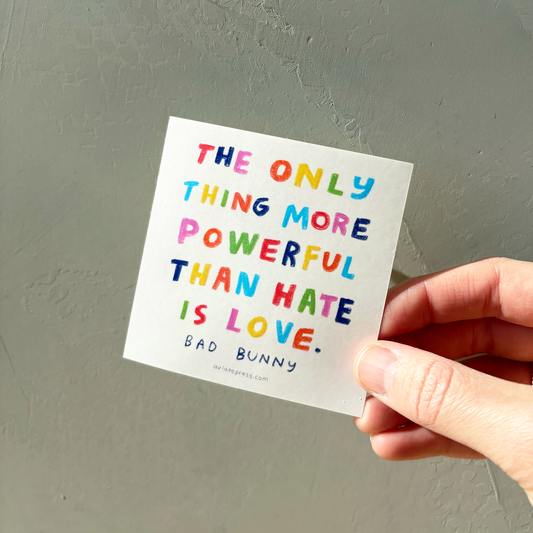 THE ONLY
THING MORE
POWERFUL
THAN HATE
IS LOVE.
BAD BUNNY